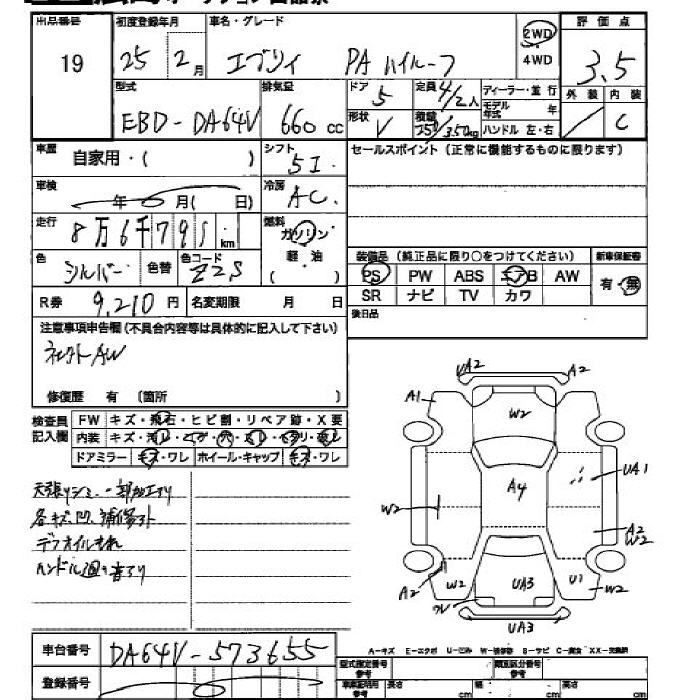 出品番号 初度登録年月 車名・グレード 評価点
19 25 2月 エブリイ PA ハイルーフ 2WD 4WD 3.5
型式 排気量 ドア 定員 ディーラー・並行 外装 内装
EBD-DA64V 660cc 5 4/2人 モデル年式 年 C
形状 V 積載 250/350kg ハンドル 左・右
車歴 自家用・( ) シフト 5I. セールスポイント(正常に機能するものに限ります)
車検 年 月( 日) 冷房 AC.
走行 8万6千795km 燃料 ガソリン 軽油 ( )
装備品(純正品に限り○をつけてください) 新車保証書
色 シルバー 色替 色コード Z2S PS PW ABS エアB AW 有・無
SR ナビ TV カワ
R券 9,210円 名変期限 月 日 後日品
注意事項申告欄(不具合内容等は具体的に記入して下さい)
AW
修復歴 有 (箇所 )
検査員記入欄 FW キズ・飛石・ヒビ割・リペア跡・X要
内装
ドアミラー キズ・ワレ ホイール・キャップ キズ・ワレ
各キズ、凹、補修跡
デフオイルもれ
UA2 A2
A1 W2
A4 UA1
W2 A2 W2
A2 W2 UA3 U1 W2
ワレ UA3
A-キズ E-エクボ U-凹み W-補修跡 S-サビ C-腐食 XX-交換済
車台番号 DA64V-573655
型式指定番号 参考 類別区分番号 参考
登録番号 長さ cm 幅 cm 高さ cm